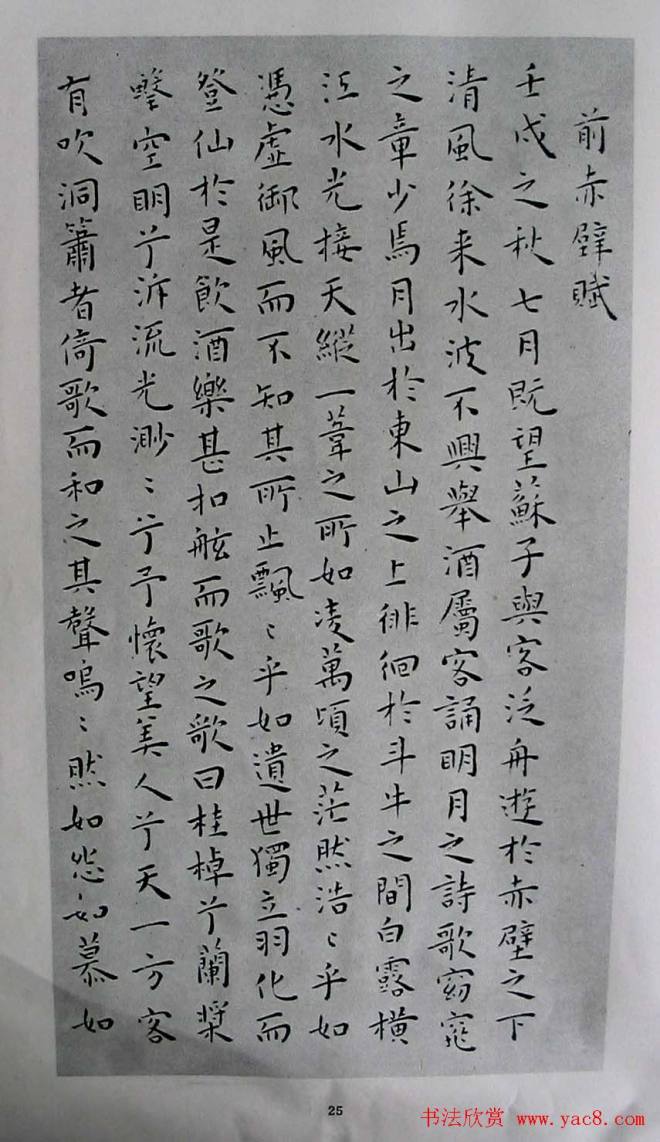 前赤壁賦
壬戌之秋七月既望蘇子與客泛舟遊於赤壁之下
清風徐来水波不興舉酒屬客誦明月之詩歌窈窕
之章少焉月出於東山之上徘徊於斗牛之間白露橫
江水光接天縱一葦之所如凌萬頃之茫然浩〻乎如
憑虛御風而不知其所止飄〻乎如遺世獨立羽化而
登仙於是飲酒樂甚扣舷而歌之歌曰桂棹兮蘭槳
擊空明兮泝流光渺〻兮予懷望美人兮天一方客
有吹洞簫者倚歌而和之其聲嗚〻然如怨如慕如
25
书法欣赏 www.yac8.com